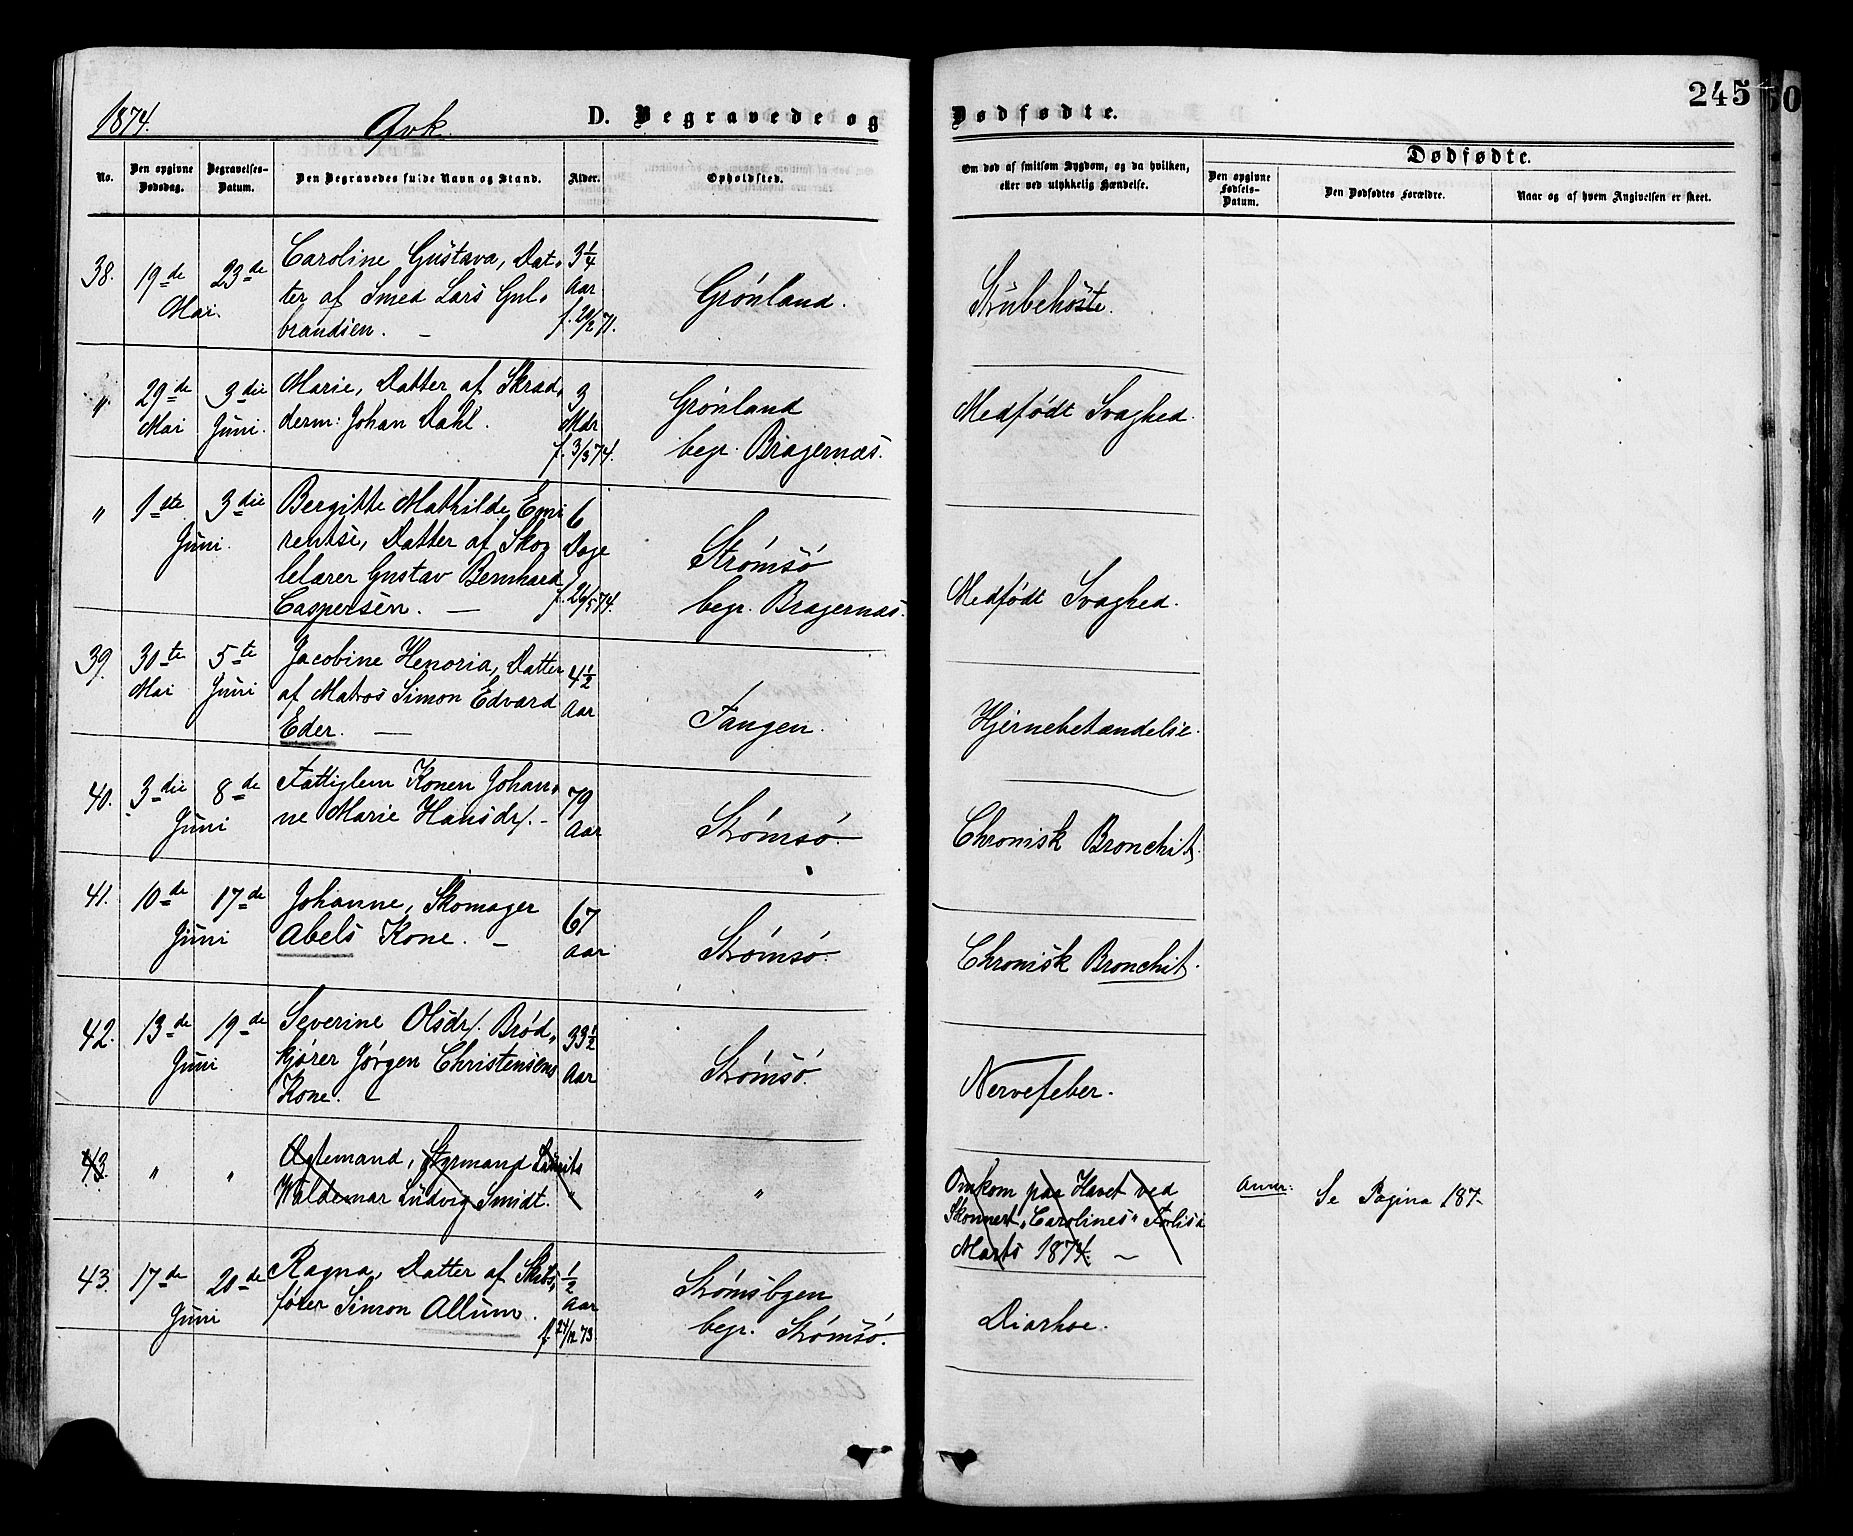 1874.
Qvk.
D. Begravede og
Dødfødte.
245
No.
Den opgivne
Dødsdag.
Begravelses-
Datum.
Den Begravedes fulde Navn og Stand.
Alder.
Opholdsted.
Om død af smitsom Sygdom, og da hvilken,
eller ved ulykkelig Hændelse.
Dødfødte.
Den opgivne
Fødsels-
Datum.
Den Dødfødtes Forældre.
Naar og af hvem Angivelsen er skeet.
38.
19de
23de
Mai.
Caroline Gustava, Dat-
ter af Smed Lars Gul-
brandsen. —
3 1/4
Aar
f. 20/2 71.
Grønland.
Strubehoste.
"
29de
Mai
3die
Juni.
Marie, Datter af Skræd-
derm: Johan Dahl.
3
Mdr
f. 3/3 74.
Grønland
begr. Bragernæs.
Medfødt Svaghed.
"
1ste
3die
Juni.
Bergitte Mathilde Eme-
rentse, Datter af Sko-
lelærer Gustav Bernhard
Caspersen. —
6
Dage
f. 26/5 74.
Strømsø
begr. Bragernæs.
Medfødt Svaghed.
39.
30te
Mai
5te
Juni
Jacobine Henoria, Datter
af Matros Simon Edvard
Eder. —
4 1/2
Aar
Tangen.
Hjernebetændelse.
40.
3die
8de
Juni
Fattiglem Konen Johan-
ne Marie Hansdr. -
79
Aar
Strømsø.
Chronisk Bronchit.
41.
10de
17de
Juni
Johanne, Skomager
Abels Kone. -
67
Aar
Strømsø.
Chronisk Bronchit.
42.
13de
19de
Juni
Severine Olsdr. Brød-
kjører Jørgen Christensens
Kone.
33 1/2
Aar
Strømsø.
Nervefeber.
43.
"
"
Ægtemand, Styrmand Laurits
Waldemar Ludvig Smidt.
"
"
Omkom paa Havet ved
Skonnert „Carolines" Forlis i
Marts 1874. —
Anm:
Se Pagina 187-
43.
17de
20de
Juni
Ragna, Datter af Skibs-
fører Simon Allum.
1/2
Aar
f. 24/12 73.
Strømsbyen
begr. Strømsø.
Diarhoe.